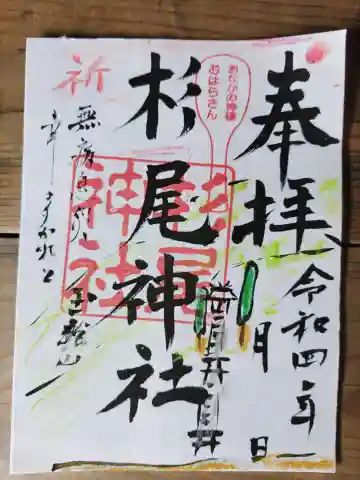 奉拝
令和四年
月
日
おなかの神様
おはらさん
杉尾神社
杉尾
神社
祈
無病息災
幸しまかれと